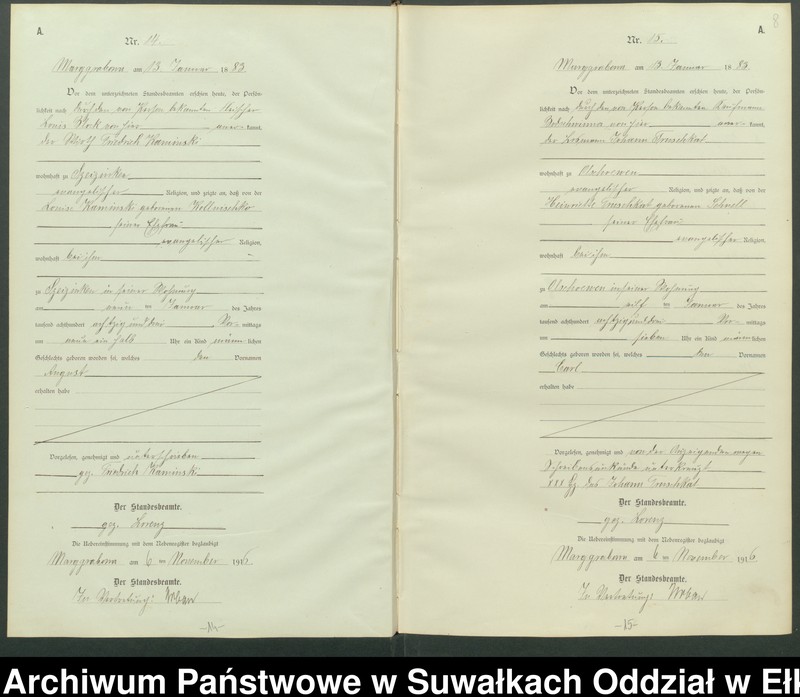 A.
Nr. 14.
Marggrabowa am 13. Januar 1883.
Vor dem unterzeichneten Standesbeamten erschien heute, der Persön-
lichkeit nach durch den von Person bekannten
Louis von hier aner- kannt,
der Friedrich Kaminski
wohnhaft zu
evangelischer Religion, und zeigte an, daß von der
Louise Kaminski geborenen
seiner Ehefrau
evangelischer Religion,
wohnhaft bei ihm
zu in seiner Wohnung
am neun ten Januar des Jahres
tausend achthundert achtzig und drei Vor- mittags
um neun ein halb Uhr ein Kind männ- lichen
Geschlechts geboren worden sei, welches den Vornamen
August
erhalten habe
Vorgelesen, genehmigt und unterschrieben
gez. Friedrich Kaminski
Der Standesbeamte.
gez. Lorenz
Die Uebereinstimmung mit dem Nebenregister beglaubigt
Marggrabowa am 6 ten November 1916
Der Standesbeamte.
In Vertretung: Urban
-14-
A.
8
Nr. 15.
Marggrabowa am 13 Januar 1883.
Vor dem unterzeichneten Standesbeamten erschien heute, der Persön-
lichkeit nach durch den von Person bekannten Kaufmann
von hier aner- kannt,
der Johann
wohnhaft zu Olschoewen
evangelischer Religion, und zeigte an, daß von der
Heinriette geborenen Schnell
seiner Ehefrau
evangelischer Religion,
wohnhaft bei ihm
zu Olschoewen in seiner Wohnung
am elf ten Januar des Jahres
tausend achthundert achtzig und drei Vor- mittags
um sieben Uhr ein Kind männ- lichen
Geschlechts geboren worden sei, welches den Vornamen
Carl
erhalten habe
Vorgelesen, genehmigt und von der Anzeigenden wegen
Schreibensunkunde unterkreuzt
xxx des Johann
Der Standesbeamte.
gez. Lorenz
Die Uebereinstimmung mit dem Nebenregister beglaubigt
Marggrabowa am 6 ten November 1916
Der Standesbeamte.
In Vertretung: Urban
-15-
Archiwum Państwowe w Suwałkach Oddział w Ełk